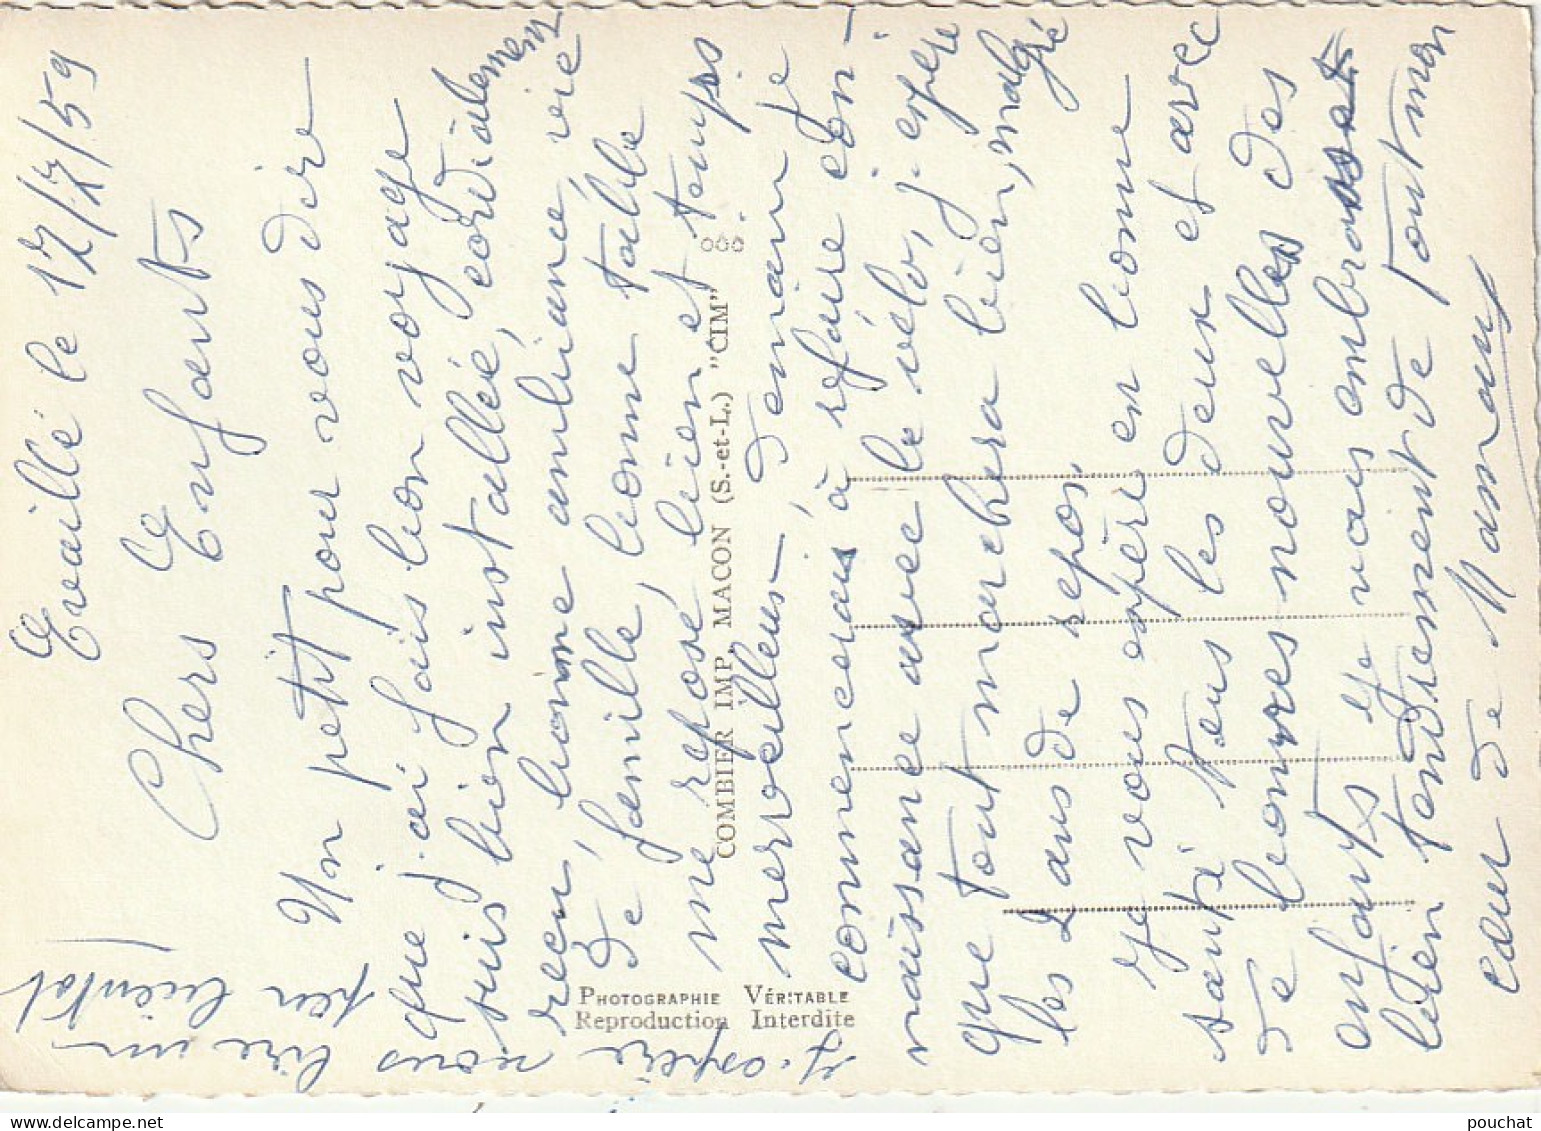 Evaillé le 17/7/59
Chers Enfants
Un petit pour vous dire
que j'ai fais bon voyage
suis bien installée, cordialement
recu, bonne ambiance, vie
de famille, bonne table
me repose bien et temps
merveilleux, demain je
commencerais à refaire con-
naissance avec le vélo, j'espère
que tout marchera bien, malgré
les 2 ans de repos.
Je vous espère en bonne
santé tous les deux et avec
de bonnes nouvelles des
enfants je vous embrasse
bien tendrement de tout mon
cœur de Maman
J'espère vous lire un
peu bientot
COMBIER IMP. MACON (S.-et-L.) "CIM"
PHOTOGRAPHIE VÉRITABLE
Reproduction Interdite
pouchat